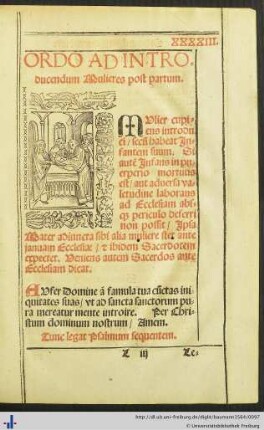 XXXXIII.
ORDO AD INTRO.
ducendum Mulieres post partum.
MVlier cupiens
introduci
, secũ habeat Infantem
suum. Si
autẽ Infans in puerperio
mortuus
est, aut aduersa valetudine
laborans
ad Ecclesiam absq;
periculo deferri
non possit, Ipsa
Mater adiuncta sibi alia muliere stet ante
januam Ecclesiæ, et ibidem Sacerdotem
expectet. Veniens autem Sacerdos ante
Ecclesiam dicat.
AVfer Domine ã famula tua cũctas iniquitates
suas, vt ad sancta sanctorum pura
mereatur mente introire. Per Christum
dominum nostrum, Amen.
Tunc legat Psalmum sequentem.
L iij
Le-
http://dl.ub.uni-freiburg.de/diglit/baumann1504/0097
© Universitätsbibliothek Freiburg